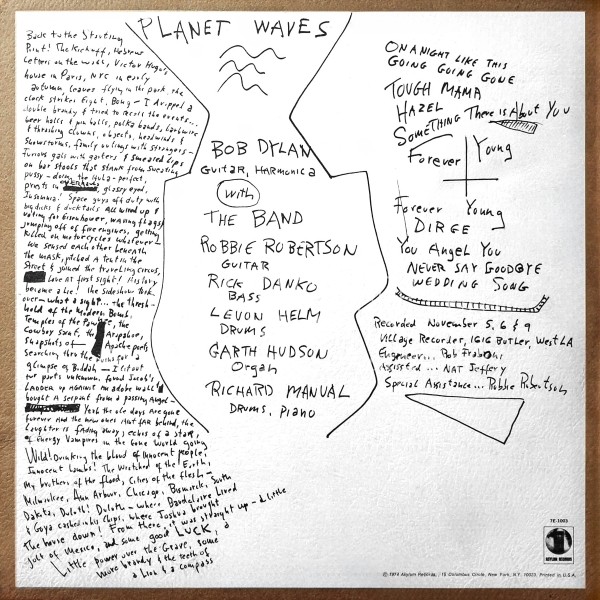 PLANET WAVES
Back to the Starting
Point! The Kickoff, Hebrew
Letters on the walls, Victor Hugo's
house in Paris, NYC in early
autumn, leaves flying in the park, the
clock strikes Eight, Bong - I dropped a
double brandy & tried to recall the events...
beer halls & pin balls, polka bands, barbwire
& thrashing clowns, objects, headwinds &
snowstorms, family outings with strangers -
furious gals with garters & smeared lips
on bar stools that stank from sweating
pussy - doing the Hula - perfect,
priests in overhauls, glassy eyed,
Insomnia! Space guys off duty with
big dicks & ducktails all wired up &
voting for Eisenhower, waving flags &
jumping off of fire engines, getting
killed on motorcycles whatever -
We sensed each other beneath
the mask, pitched a tent in the
street & joined the traveling circus,
love at first sight! History
became a lie! the sideshow took
over - what a sight... the thresh-
hold of the Modern Bomb,
Temples of the Pawnee, the
Cowboy Saint, the Arapahoe,
Snapshots of Apache poets
searching thru the ruins for a
glimpse of Buddah - I lit out
for parts unknown, found Jacob's
ladder up against an adobe wall &
bought a serpent from a passing angel -
Yeah the ole days are gone
forever and the new ones aint far behind, the
laughter is fading away, echos of a star,
of Energy Vampires in the Gone World going
Wild! Drinking the blood of innocent people,
Innocent Lambs! The Wretched of the Earth,
My brothers of the flood, cities of the flesh -
Milwaukee, Ann Arbor, Chicago, Bismarck, South
Dakota, Duluth! Duluth - where Baudelaire Lived
& Goya cashed in his Chips, where Joshua brought
the house down! From there, it was straight up - a little
jolt of Mexico, and some good LUCK, a
Little power over the Grave, some
more brandy & the teeth of
a lion & a compass
BOB DYLAN
Guitar, Harmonica
with
THE BAND
ROBBIE ROBERTSON
GUITAR
RICK DANKO
BASS
LEVON HELM
DRUMS
GARTH HUDSON
Organ
RICHARD MANUAL
DRUMS, PIANO
ON A NIGHT LIKE THIS
GOING GOING GONE
TOUGH MAMA
HAZEL
SOMETHING There is About You
Forever Young
Forever Young
DIRGE
You Angel You
NEVER SAY GOODBYE
WEDDING SONG
Recorded November 5, 6 & 9
Village Recorder, 1616 Butler, West LA
Engineer... Rob Fraboni
Assisted... NAT Jeffery
Special Assistance... Robbie Robertson
7E-1003
ASYLUM RECORDS
© 1974 Asylum Records, 15 Columbus Circle, New York, N.Y. 10023. Printed in U.S.A.